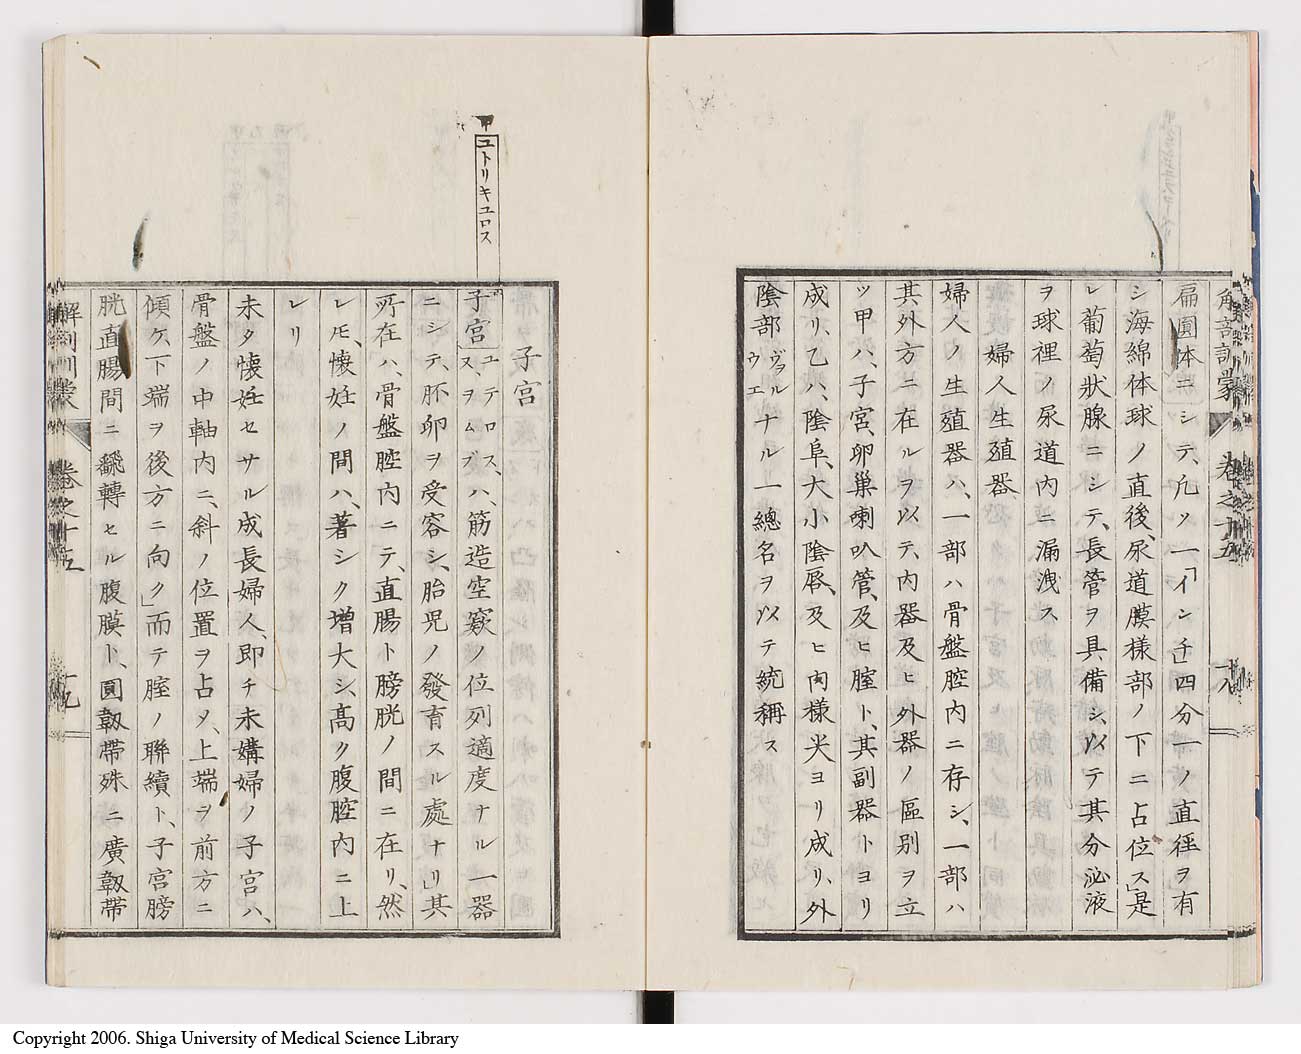 解剖訓蒙 卷之十五 十八
扁圓体ニシテ、凡ソ一「インチ」四分一ノ直徑ヲ有
シ海綿体球ノ直後、尿道膜様部ノ下ニ占位ス」是
レ葡萄狀腺ニシテ、長管ヲ具備シ、以テ其分泌液
ヲ球裡ノ尿道內ニ漏洩ス
婦人生殖器
婦人ノ生殖器ハ、一部ハ骨盤腔內ニ存シ、一部ハ
其外方ニ在ルヲ以テ、內器及ヒ外器ノ區別ヲ立
ツ甲ハ、子宮、卵巢喇叭管、及ヒ腟ト、其副器トヨリ
成リ、乙ハ、陰阜、大小陰唇、及ヒ肉様尖ヨリ成リ、外
陰部ヴァルウエナル一總名ヲ以テ統稱ス
甲
ユトリキュロス
子宮
子宮ユテロス、又、ヲムブハ、筋造空竅ノ位列適度ナル一器
ニシテ、胚卵ヲ受容シ、胎児ノ發育スル處ナリ」其
所在ハ、骨盤腔內ニテ、直腸ト膀胱ノ間ニ在リ、然
レ𪜈、懐妊ノ間ハ、著シク增大シ、高ク腹腔內ニ上
レリ
未タ懐妊セサル成長婦人、即チ未媾婦ノ子宮ハ、
骨盤ノ中軸內ニ、斜ノ位置ヲ占メ、上端ヲ前方ニ
傾ケ、下端ヲ後方ニ向ク」而テ腟ノ聯續ト、子宮膀
胱直腸間ニ飜轉セル腹膜ト、圓韌帶殊ニ廣韌帶
解剖訓蒙 卷之十五 十九
Copyright 2006. Shiga University of Medical Science Library